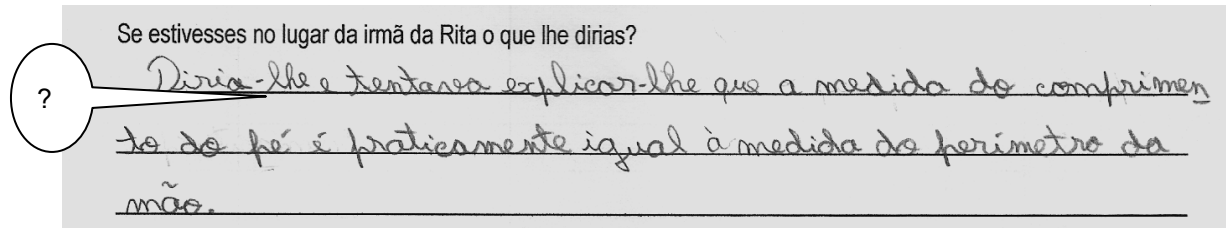 Se estivesses no lugar da irmã da Rita o que lhe dirias?
?
Diria-lhe e tentava explicar-lhe que a medida do comprimen
to do pé é praticamente igual à medida do perímetro da
mão.